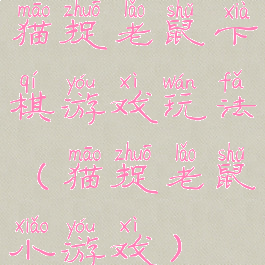 māo zhuō lǎo shǔ xià
猫捉老鼠下
qí yóu xì wán fǎ
棋游戏玩法
māo zhuō lǎo shǔ
（猫捉老鼠
xiǎo yóu xì
小游戏）